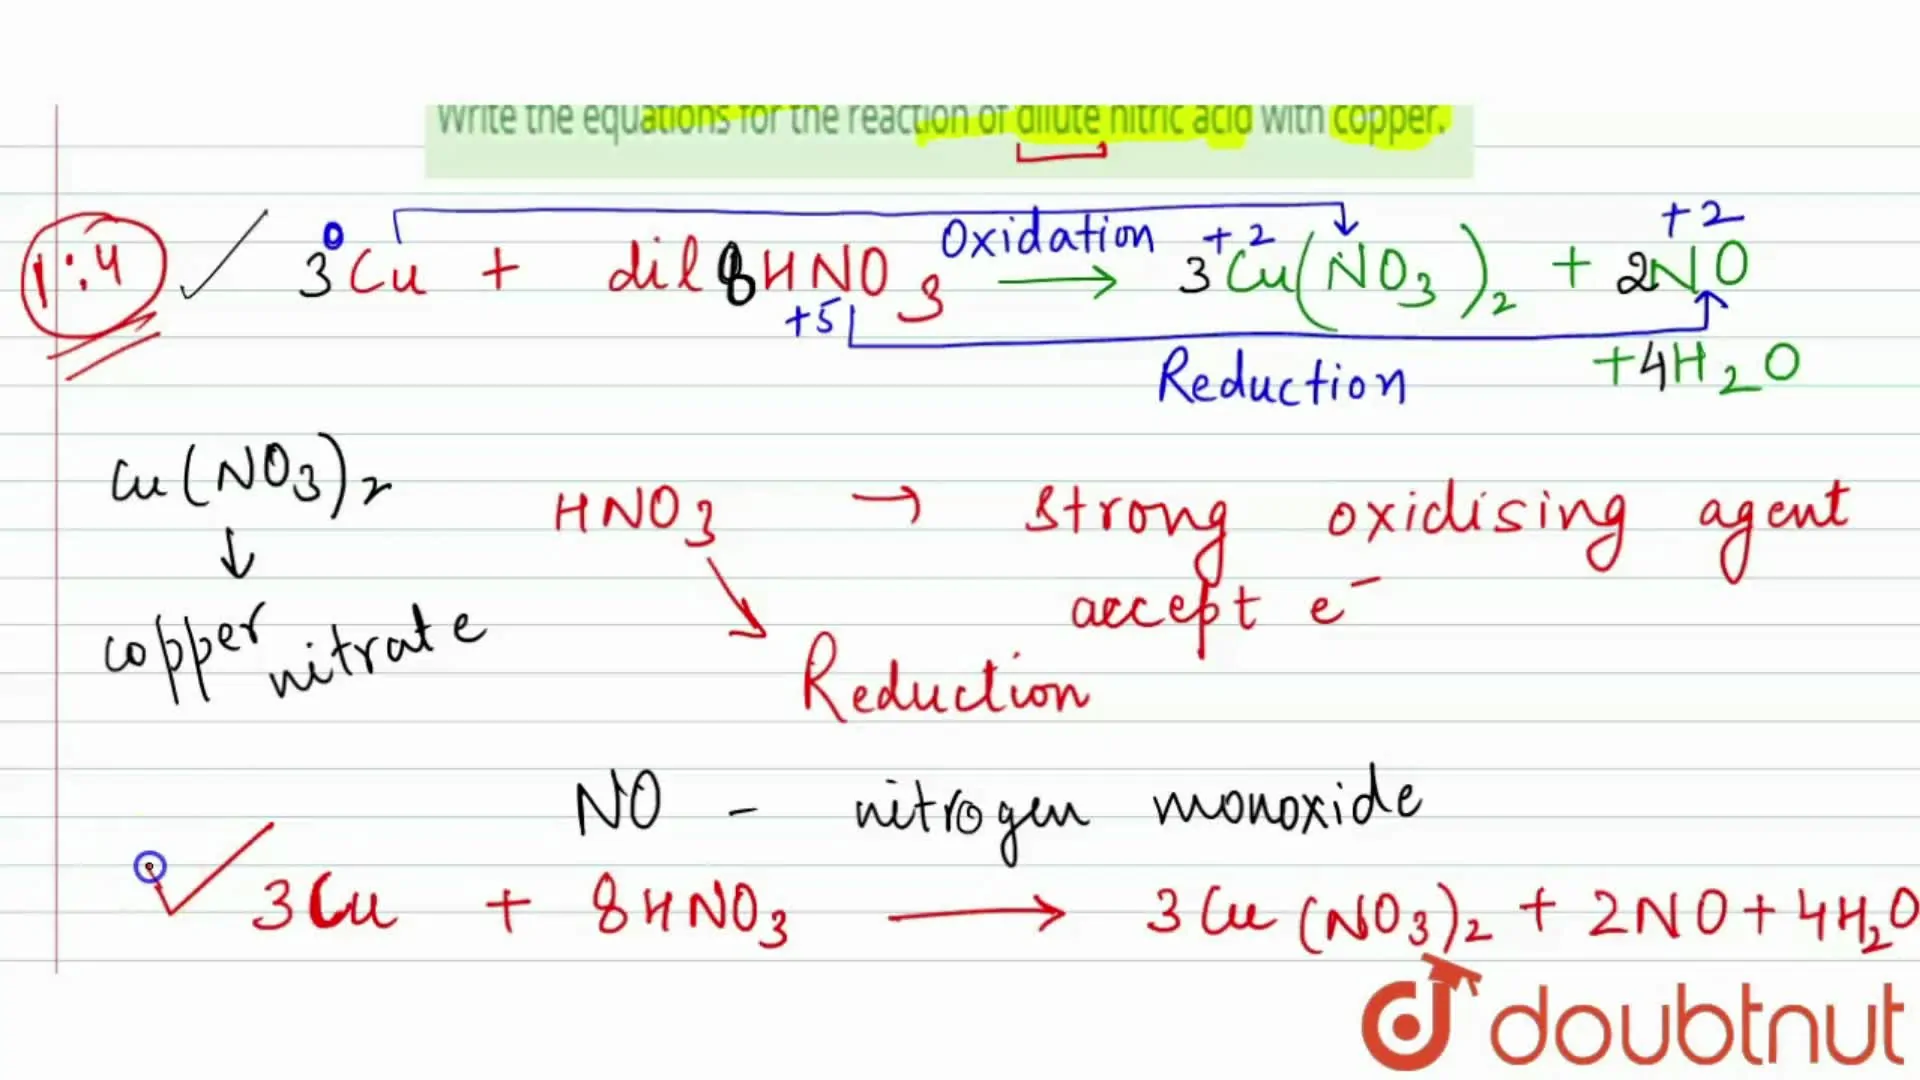 Write the equations for the reaction of dilute nitric acid with copper.
1:4
0
3Cu + dil 8HNO3 → 3Cu(NO3)2 + 2NO
Oxidation
+2
+2
+5
Reduction
+4H2O
Cu(NO3)2
↓
copper nitrate
HNO3 → Strong oxidising agent
accept e⁻
Reduction
NO - nitrogen monoxide
3Cu + 8HNO3 → 3Cu(NO3)2 + 2NO + 4H2O
doubtnut